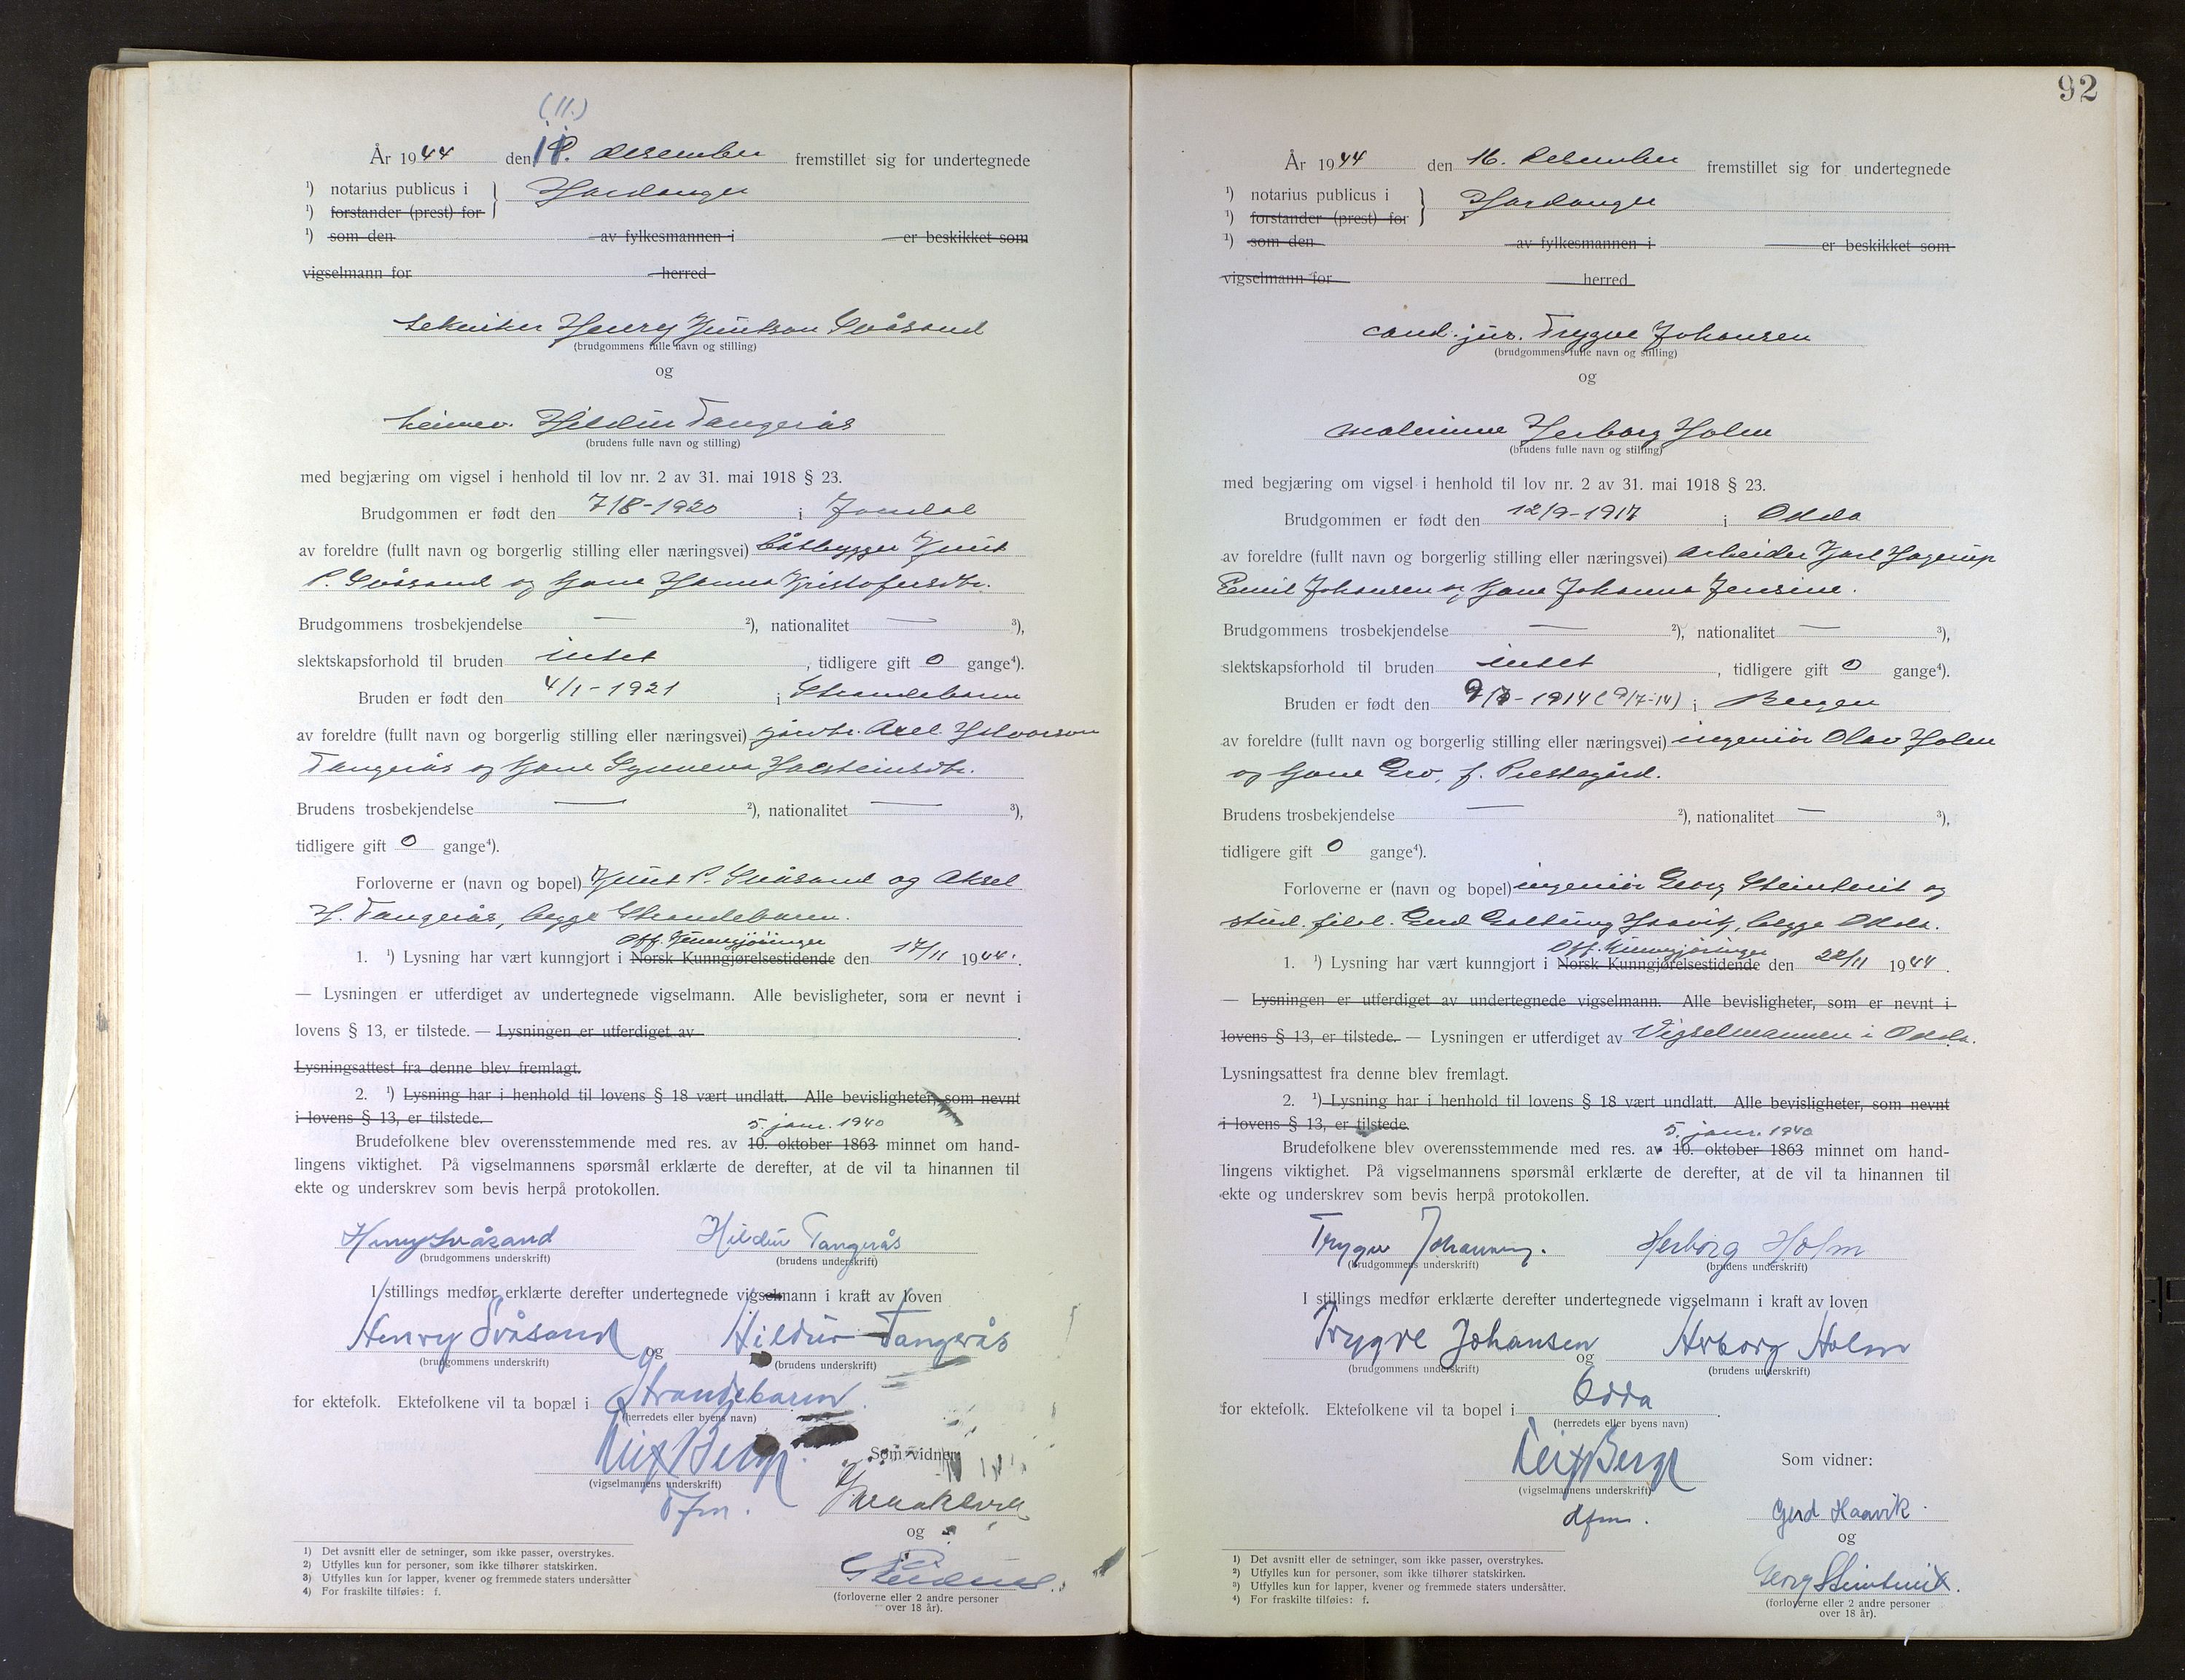 (11.)
År 1944 den 11. desember fremstillet sig for undertegnede
¹) notarius publicus i } Hardanger
¹) forstander (prest) for
¹) som den av fylkesmannen i er beskikket som
vigselmann for herred
tekniker Henry Knutson Svåsand
(brudgommens fulle navn og stilling)
og
heimev. Hildur Tangerås
(brudens fulle navn og stilling)
med begjæring om vigsel i henhold til lov nr. 2 av 31. mai 1918 § 23.
Brudgommen er født den 7/8-1920 i Jondal
av foreldre (fullt navn og borgerlig stilling eller næringsvei) båtbygger Knut
P. Svåsand og kone Hanna Kristofersdtr.
Brudgommens trosbekjendelse — ²), nationalitet — ³),
slektskapsforhold til bruden intet, tidligere gift 0 gange⁴).
Bruden er født den 4/1-1921 i Strandebarm
av foreldre (fullt navn og borgerlig stilling eller næringsvei) gårdbr. Axel Halvorson
Tangerås og kone Synneva Halsteinsdtr.
Brudens trosbekjendelse — ²), nationalitet — ³),
tidligere gift 0 gange⁴).
Forloverne er (navn og bopel) Knut P. Svåsand og Aksel
H. Tangerås, begge Strandebarm.
Off. Kunngjøringer
1. ¹) Lysning har vært kunngjort i Norsk Kunngjørelsestidende den 17/11 1944.
— Lysningen er utferdiget av undertegnede vigselmann. Alle bevisligheter, som er nevnt i
lovens § 13, er tilstede. — Lysningen er utferdiget av
Lysningsattest fra denne blev fremlagt.
2. ¹) Lysning har i henhold til lovens § 18 vært undlatt. Alle bevisligheter, som nevnt
i lovens § 13, er tilstede.
5. jan. 1940
Brudefolkene blev overensstemmende med res. av 10. oktober 1863 minnet om hand-
lingens viktighet. På vigselmannens spørsmål erklærte de derefter, at de vil ta hinannen til
ekte og underskrev som bevis herpå protokollen.
Henry Svåsand Hildur Tangerås
(brudgommens underskrift) (brudens underskrift)
I stillings medfør erklærte derefter undertegnede vigselmann i kraft av loven
Henry Svåsand og Hildur Tangerås
(brudgommens underskrift) (brudens underskrift)
for ektefolk. Ektefolkene vil ta bopæl i Strandebarm.
(herredets eller byens navn)
Leif Berge Som vidner:
(vigselmannens underskrift)
dfm.
og
(forloverne eller 2 andre personer
over 18 år).
¹) Det avsnitt eller de setninger, som ikke passer, overstrykes.
²) Utfylles kun for personer, som ikke tilhører statskirken.
³) Utfylles kun for lapper, kvener og fremmede staters undersåtter
⁴) For fraskilte tilføies: f.
92
År 1944 den 16. desember fremstillet sig for undertegnede
¹) notarius publicus i } Hardanger
¹) forstander (prest) for
¹) som den av fylkesmannen i er beskikket som
vigselmann for herred
cand. jur. Trygve Johansen
(brudgommens fulle navn og stilling)
og
malerinne Herborg Holm
(brudens fulle navn og stilling)
med begjæring om vigsel i henhold til lov nr. 2 av 31. mai 1918 § 23.
Brudgommen er født den 12/9-1917 i Odda
av foreldre (fullt navn og borgerlig stilling eller næringsvei) arbeider Karl Hagerup
Emil Johansen og kone Johanna Jensine.
Brudgommens trosbekjendelse — ²), nationalitet — ³),
slektskapsforhold til bruden intet, tidligere gift 0 gange⁴).
Bruden er født den 9/7-1914 (9/7-14) i Bergen
av foreldre (fullt navn og borgerlig stilling eller næringsvei) ingeniør Olav Holm
og kone Gro, f. Prestegård.
Brudens trosbekjendelse — ²), nationalitet — ³),
tidligere gift 0 gange⁴).
Forloverne er (navn og bopel) ingeniør Georg Steintveit og
stud. filol. Gerd Galtung Haavik, begge Odda.
Off. Kunngjøringer
1. ¹) Lysning har vært kunngjort i Norsk Kunngjørelsestidende den 22/11 1944.
— Lysningen er utferdiget av undertegnede vigselmann. Alle bevisligheter, som er nevnt i
lovens § 13, er tilstede. — Lysningen er utferdiget av Vigselmannen i Odda.
Lysningsattest fra denne blev fremlagt.
2. ¹) Lysning har i henhold til lovens § 18 vært undlatt. Alle bevisligheter, som nevnt
i lovens § 13, er tilstede.
5. jan. 1940
Brudefolkene blev overensstemmende med res. av 10. oktober 1863 minnet om hand-
lingens viktighet. På vigselmannens spørsmål erklærte de derefter, at de vil ta hinannen til
ekte og underskrev som bevis herpå protokollen.
Trygve Johansen. Herborg Holm
(brudgommens underskrift) (brudens underskrift)
I stillings medfør erklærte derefter undertegnede vigselmann i kraft av loven
Trygve Johansen og Herborg Holm
(brudgommens underskrift) (brudens underskrift)
for ektefolk. Ektefolkene vil ta bopel i Odda.
(herredets eller byens navn)
Leif Berge Som vidner:
(vigselmannens underskrift)
dfm. Gerd Haavik
og
Georg Steintveit.
(forloverne eller 2 andre personer
over 18 år).
¹) Det avsnitt eller de setninger, som ikke passer, overstrykes.
²) Utfylles kun for personer, som ikke tilhører statskirken.
³) Utfylles kun for lapper, kvener og fremmede staters undersåtter.
⁴) For fraskilte tilføies: f.